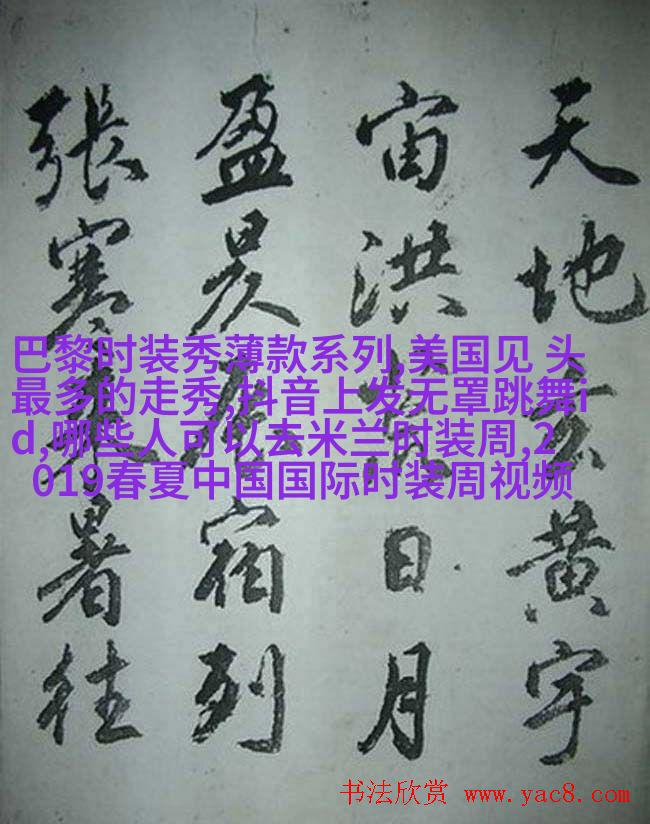 天地玄黄宇
宙洪荒日月
盈昃辰宿列
張寒来暑往
巴黎时装秀薄款系列,美国见 头
最多的走秀,抖音上发无罩跳舞i
d,哪些人可以去米兰时装周,2
019春夏中国国际时装周视频
书法欣赏 www.yac8.com